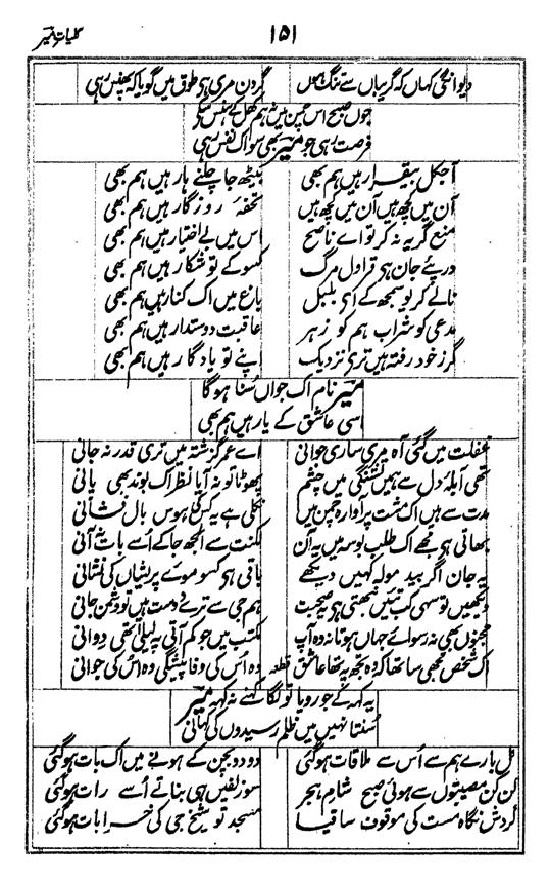 کلیات میر
۱۵۱
دیوانگی کہاں کہ گریباں سے تنگ ہوں گردن مری ہی طوق میں گویا کہ پھنس رہی
جوں صبح اس چمن میں نہ ہم کھل کے ہنس سکے
فرصت رہی جو میر بھی سو اک نفس رہی
آجکل بیقرار ہیں ہم بھی بیٹھ جا چلنے ہار ہیں ہم بھی
آن میں کچھ ہیں آن میں کچھ ہیں تحفۂ روزگار ہیں ہم بھی
منع گریہ نہ کر تو اے ناصح اس میں بے اختیار ہیں ہم بھی
درپئے جان ہی قراول مرگ کسو کے تو شکار ہیں ہم بھی
نالے کریو سمجھ کے ای بلبل باغ میں اک کنار ہیں ہم بھی
مدعی کو شراب ہم کو زہر عاقبت دوستدار ہیں ہم بھی
گر ز خود رفتہ ہیں تری نزدیک اپنے تو یادگار ہیں ہم بھی
میر نام اک جواں سنا ہوگا
اسی عاشق کے یار ہیں ہم بھی
غفلت میں گئی آہ مری ساری جوانی اے عمر گزشتہ میں تری قدر نہ جانی
تھی آبلۂ دل سے ہمیں تشنگی میں چشم پھوٹا تو نہ آیا نظر اک بوند بھی پانی
مدت سے ہیں اک مشت پر آوارہ چمن میں نکلی ہے یہ کس کی ہوس بال فشانی
بھاتی ہی مجھے اک طلب بوسہ میں یہ آن لکنت سے الجھ جاکے اسے بات نہ آنی
یہ جان اگر بید مولہ کہیں دیکھے باقی ہی کسو موے پریشاں کی نشانی
دیکھیں تو سہی کب تئیں نبھتی ہی یہ صحبت ہم جی سے ترے دوست ہیں تو دشمن جانی
مجنوں بھی نہ رسوائے جہاں ہوتا نہ وہ آپ مکتب میں جو کم آتی پہ لیلیٰ تھی دوانی
اک شخص مجھی سا تھا کہ وہ تجھ پہ تھا عاشق قطعہ وہ اس کی وفا پیشگی وہ اس کی جوانی
یہ کہہ کے جو رویا تو لگا کہنے نہ کہہ میر
سنتا نہیں میں ظلم رسیدوں کی کہانی
کل بارے ہم سے اس سے ملاقات ہوگئی دو دو بچن کے ہونے میں اک بات ہوگئی
کن کن مصیبتوں سے ہوئی صبح شام ہجر سو زلفیں ہی بناتے اسے رات ہوگئی
گردش نگاہ مست کی موقوف ساقیا مسجد تو شیخ جی کی خرابات ہوگئی